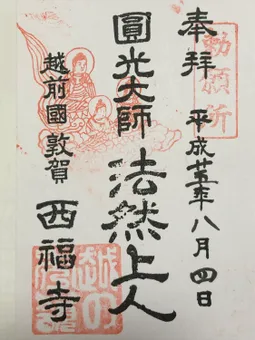 勅願所
奉拝 平成廿五年八月四日
圓光大師 法然上人
越前國敦賀 西福寺